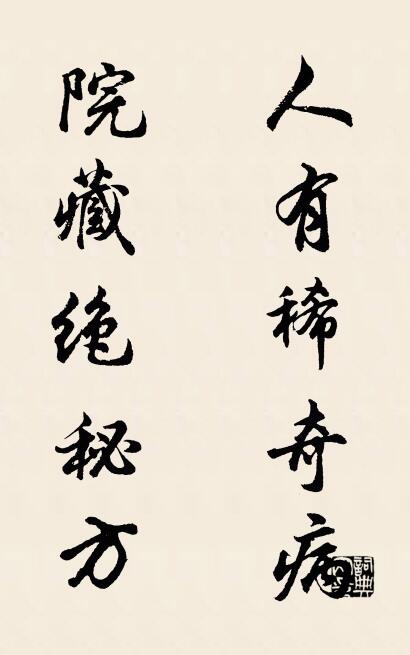 人有稀奇病
院藏绝秘方